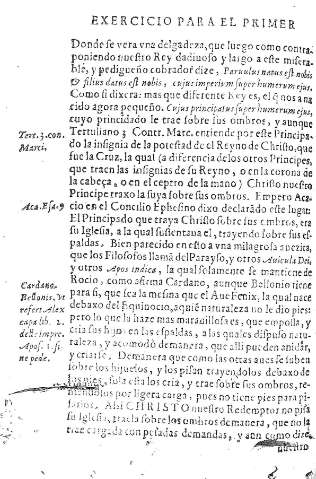 EXERCICIO PARA EL PRIMER
Donde se vera vna delgadeza, que luego como contra-
poniendo nuestro Rey dadiuoso y largo a este misera-
ble, y pedigueño cobrador dize, Paruulus natus est nobis
& filius datus est nobis, cuius imperium super humerum eius.
Como si dixera: mas que diferente Rey es, el q̃ nos a na-
cido agora pequeño. Cuius principatus super humerum eius,
cuyo principado le trae sobre sus ombros, y aunque
Tertuliano 3 Contr. Marc. entiende por este Principa-
do la insignia de la potestad de el Reyno de Christo, que
fue la Cruz, la qual (a diferencia de los otros Principes,
que traen las insignias de su Reyno, o en la corona de
la cabeça, o en el ceptro de la mano) Christo nuestro
Principe traxo la suya sobre sus ombros. Empero Aca-
cio en el Concilio Ephesino dixo declarãdo este lugar:
El Principado que traya Christo sobre sus ombros, era
su Iglesia, a la qual sustentaua el, trayendo sobre sus es-
paldas. Bien parecido en esto a vna milagrosa auezita,
que los Filosofos llamã del Parayso, y otros Auicula Dei,
y otros Apos indica, la qual solamente se mantiene de
Rocio, como afirma Cardano, aunque Bellonio tiene
para si, que sea la mesma que el Aue Fenix, la qual nace
debaxo del Equinocio, aquiẽ naturaleza no le dio pies:
pero lo que la haze mas marauillosa es, que empolla, y
cria sus hijos en las espaldas, a las quales dispuso natu-
raleza, y acomodò demanera, que alli pueden anidar,
y criarse. Demanera que como las otras aues se suben
sobre los hijuelos, y los pisan trayendolos debaxo de
los pies, sola esta los cria, y trae sobre sus ombros, re-
niendolos por ligera carga, pues no tiene pies para pi-
sarlos. Assi CHRISTO nuestro Redemptor no pisa
su Iglesia, traela sobre los ombros demanera, que no la
trae cargada con pesadas demandas, y aun como dize
nuestro
Tert. 3. con.
Marci.
Aca. Esa. 9
Cardano.
Bellonis. vt
refert Alex
capa lib. 2.